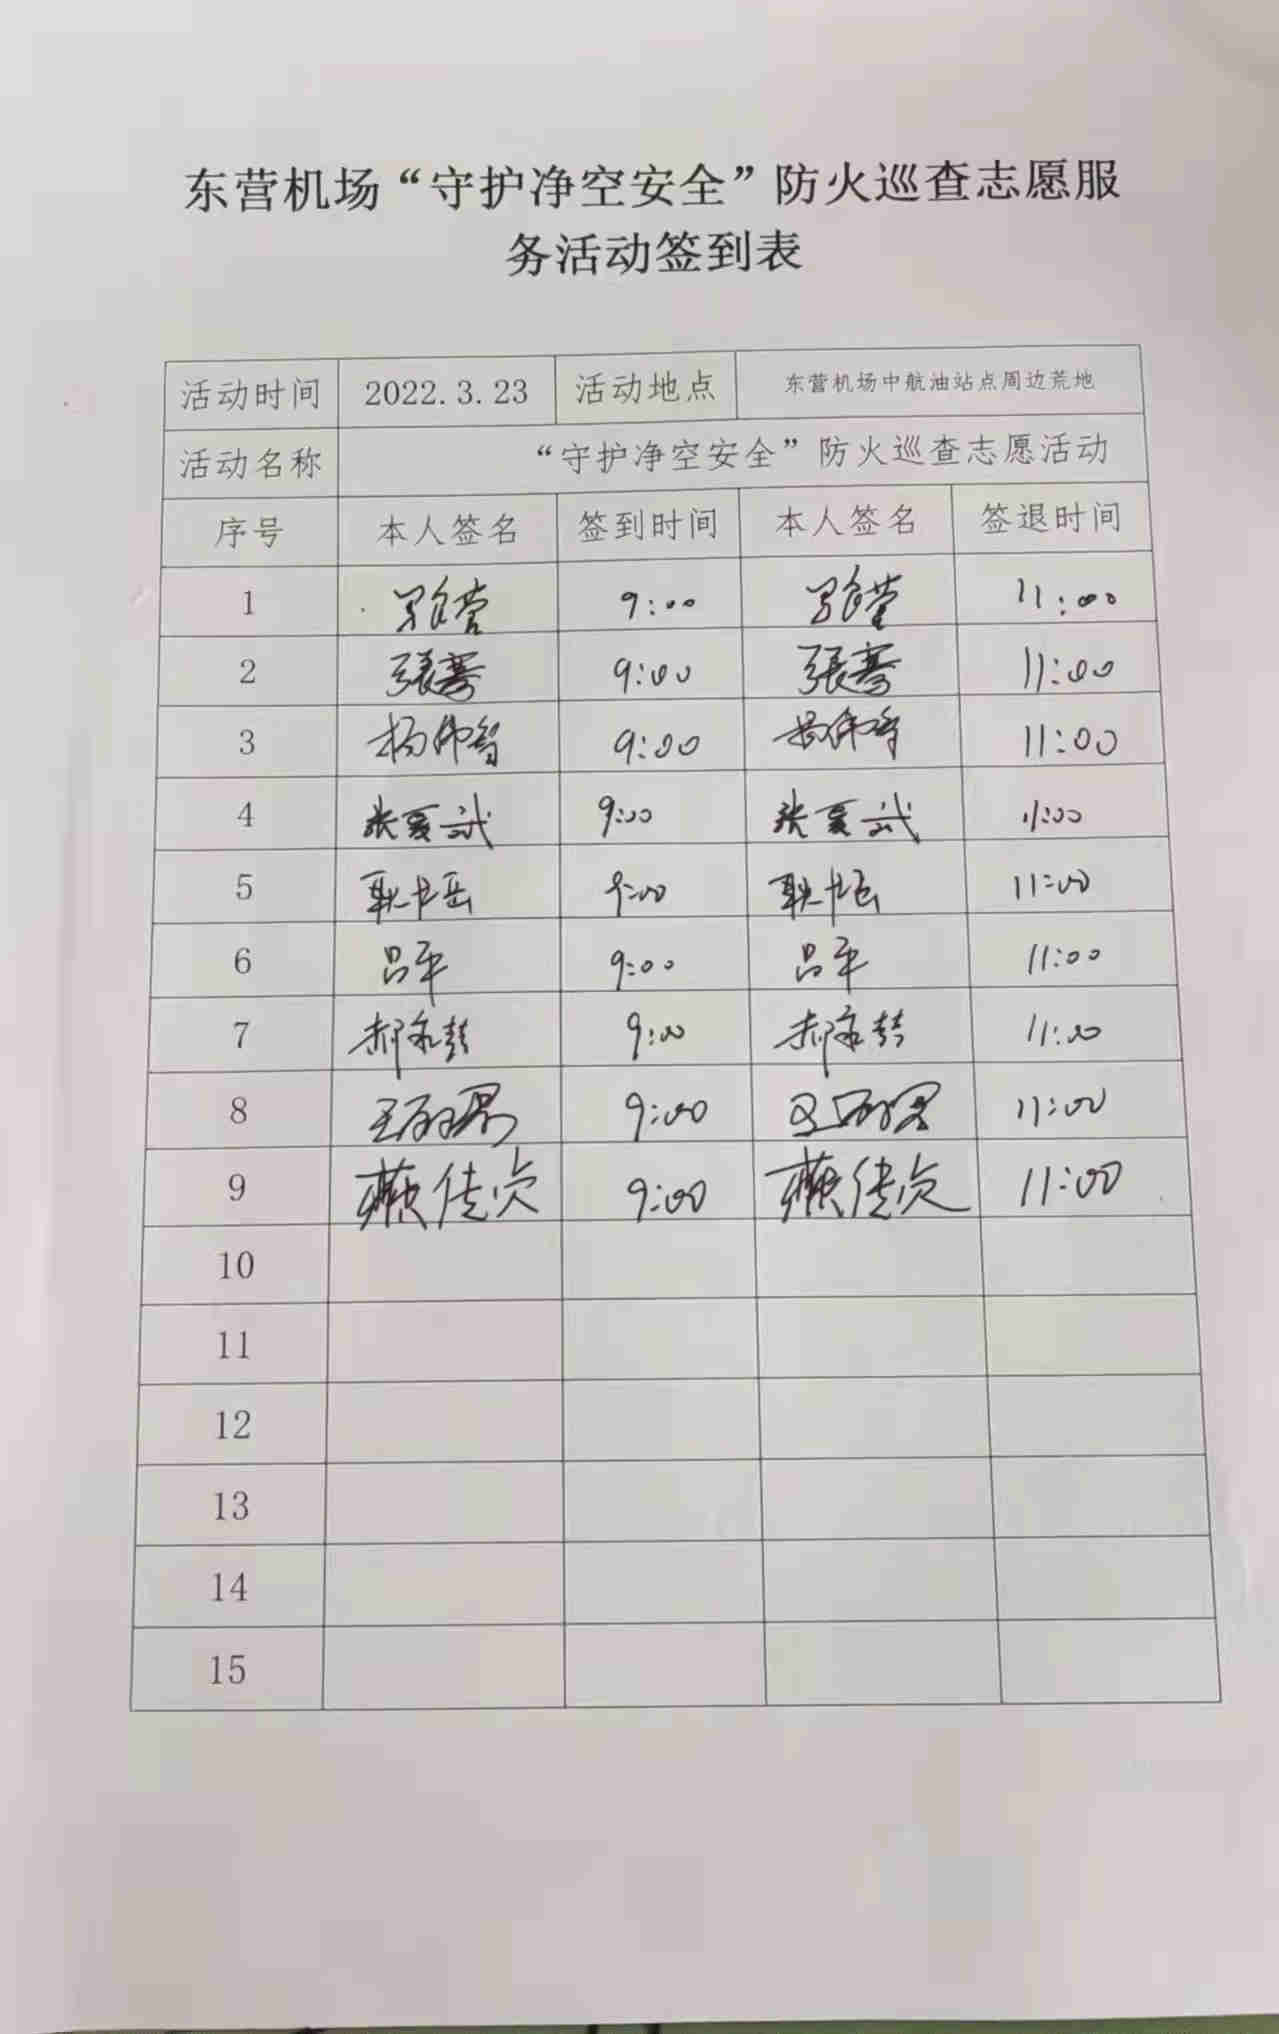 东营机场“守护净空安全”防火巡查志愿服
务活动签到表
活动时间 2022.3.23 活动地点 东营机场中航油站点周边荒地
活动名称 “守护净空安全”防火巡查志愿活动
序号 本人签名 签到时间 本人签名 签退时间
1 9:00 11:00
2 9:00 11:00
3 9:00 11:00
4 张夏斌 9:00 张夏斌 11:00
5 9:00 11:00
6 吕平 9:00 吕平 11:00
7 9:00 11:00
8 9:00 11:00
9 9:00 11:00
10
11
12
13
14
15